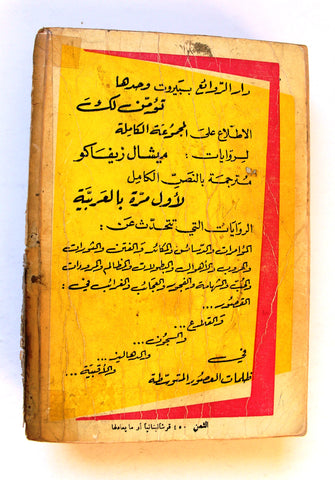 دار الروائع ببيروت وحدها
تؤمّن لك
الاطلاع على المجموعة الكاملة
لروايات : ميشال زيفاكو
مترجمة بالنصّ الكامل
لأول مرّة بالعربيّة
الروايات التي تتحدث عن :
المؤامرات والدسائس والمكائد والفتن والثورات
والحروب والأهوال والبطولات والمظالم والمروءات
والحب والشهامة والفجور والعجائب والغرائب في :
القصور ...
والقلاع ...
والسجون ...
والدهاليز ...
والأقبية ...
في
ظلمات العصور المتوسطة
الثمن ٤٥٠ قرشاً لبنانياً أو ما يعادلها